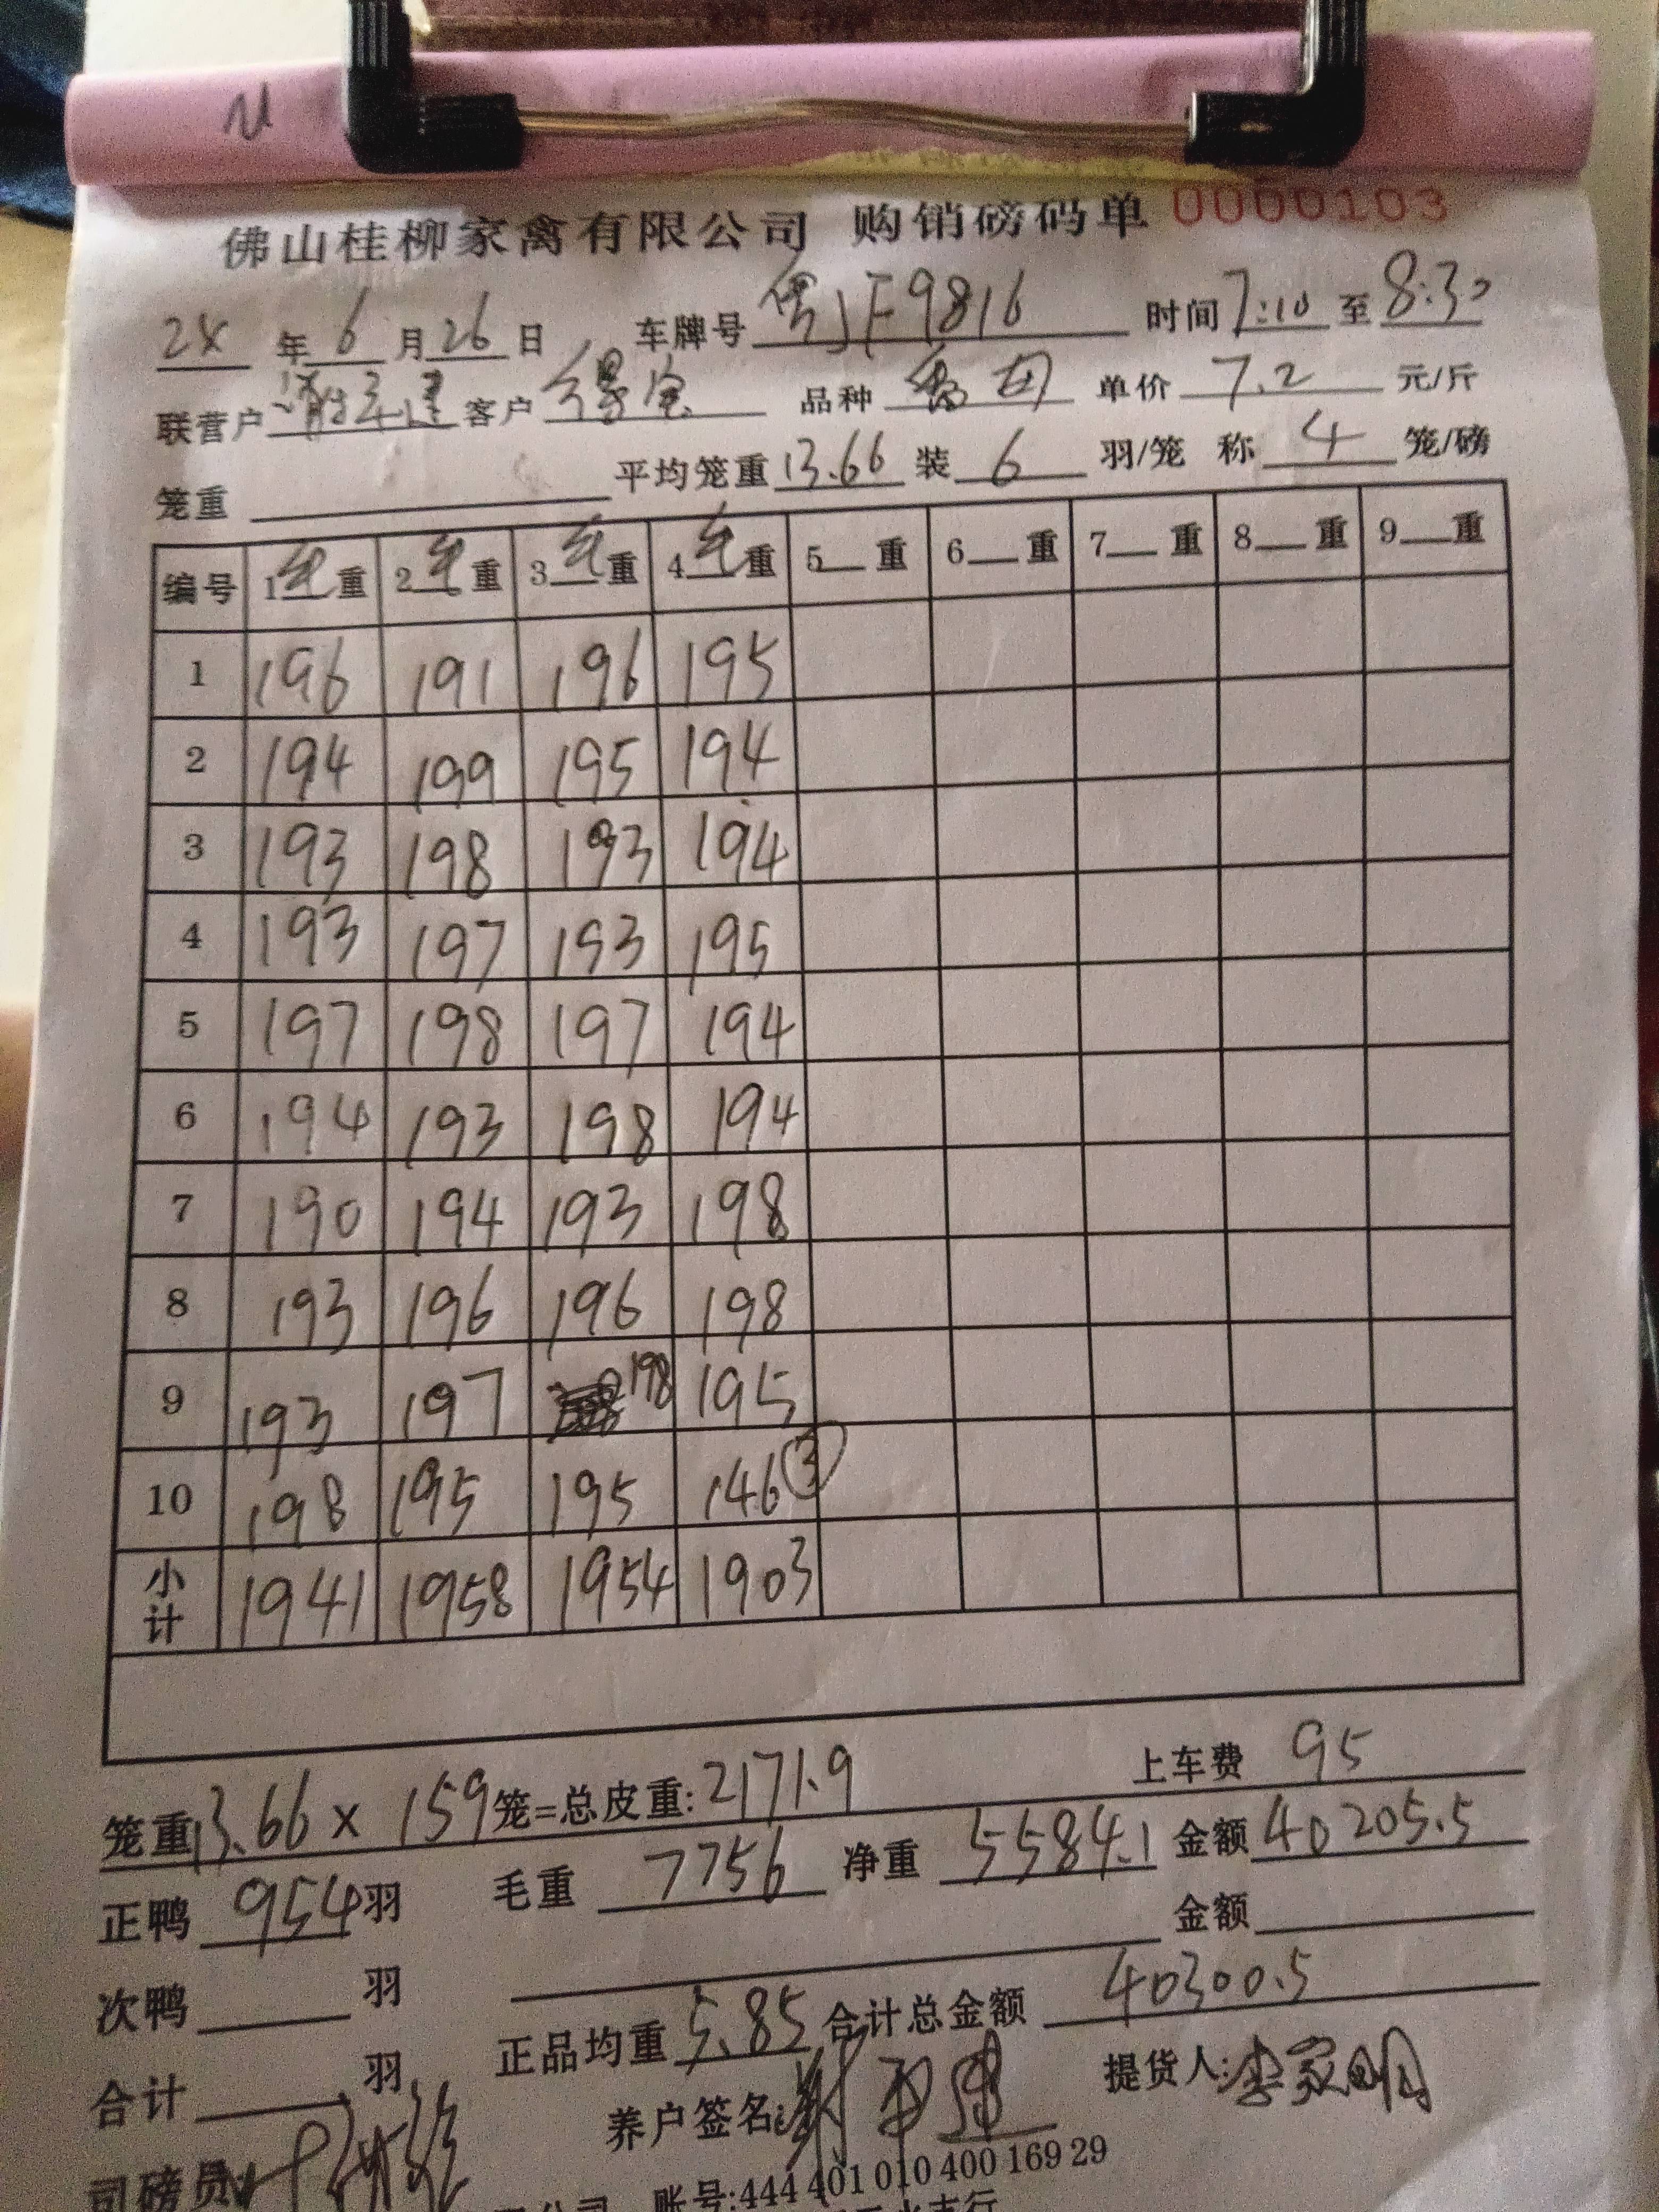 佛山桂柳家禽有限公司 购销磅码单 0000103
24 年 6 月 26 日 车牌号 粤JF9816 时间 7:10 至 8:30
联营户 客户 品种 单价 7.2 元/斤
笼重 平均笼重 13.66 装 6 羽/笼 称 4 笼/磅
编号 1毛重 2毛重 3毛重 4毛重 5 重 6 重 7 重 8 重 9 重
1 196 191 196 195
2 194 199 195 194
3 193 198 193 194
4 193 197 193 195
5 197 198 197 194
6 194 193 198 194
7 190 194 193 198
8 193 196 196 198
9 193 197 198 195
10 198 195 195 146 ③
小计 1941 1958 1954 1903
笼重 13.66 x 159 笼=总皮重: 2171.9 上车费 95
正鸭 954 羽 毛重 7756 净重 5584.1 金额 40205.5
次鸭 羽 金额
合计 羽 正品均重 5.85 合计总金额 40300.5
司磅员: 养户签名: 提货人: 李家明
公司 账号:444 401 010 400 169 29
支行